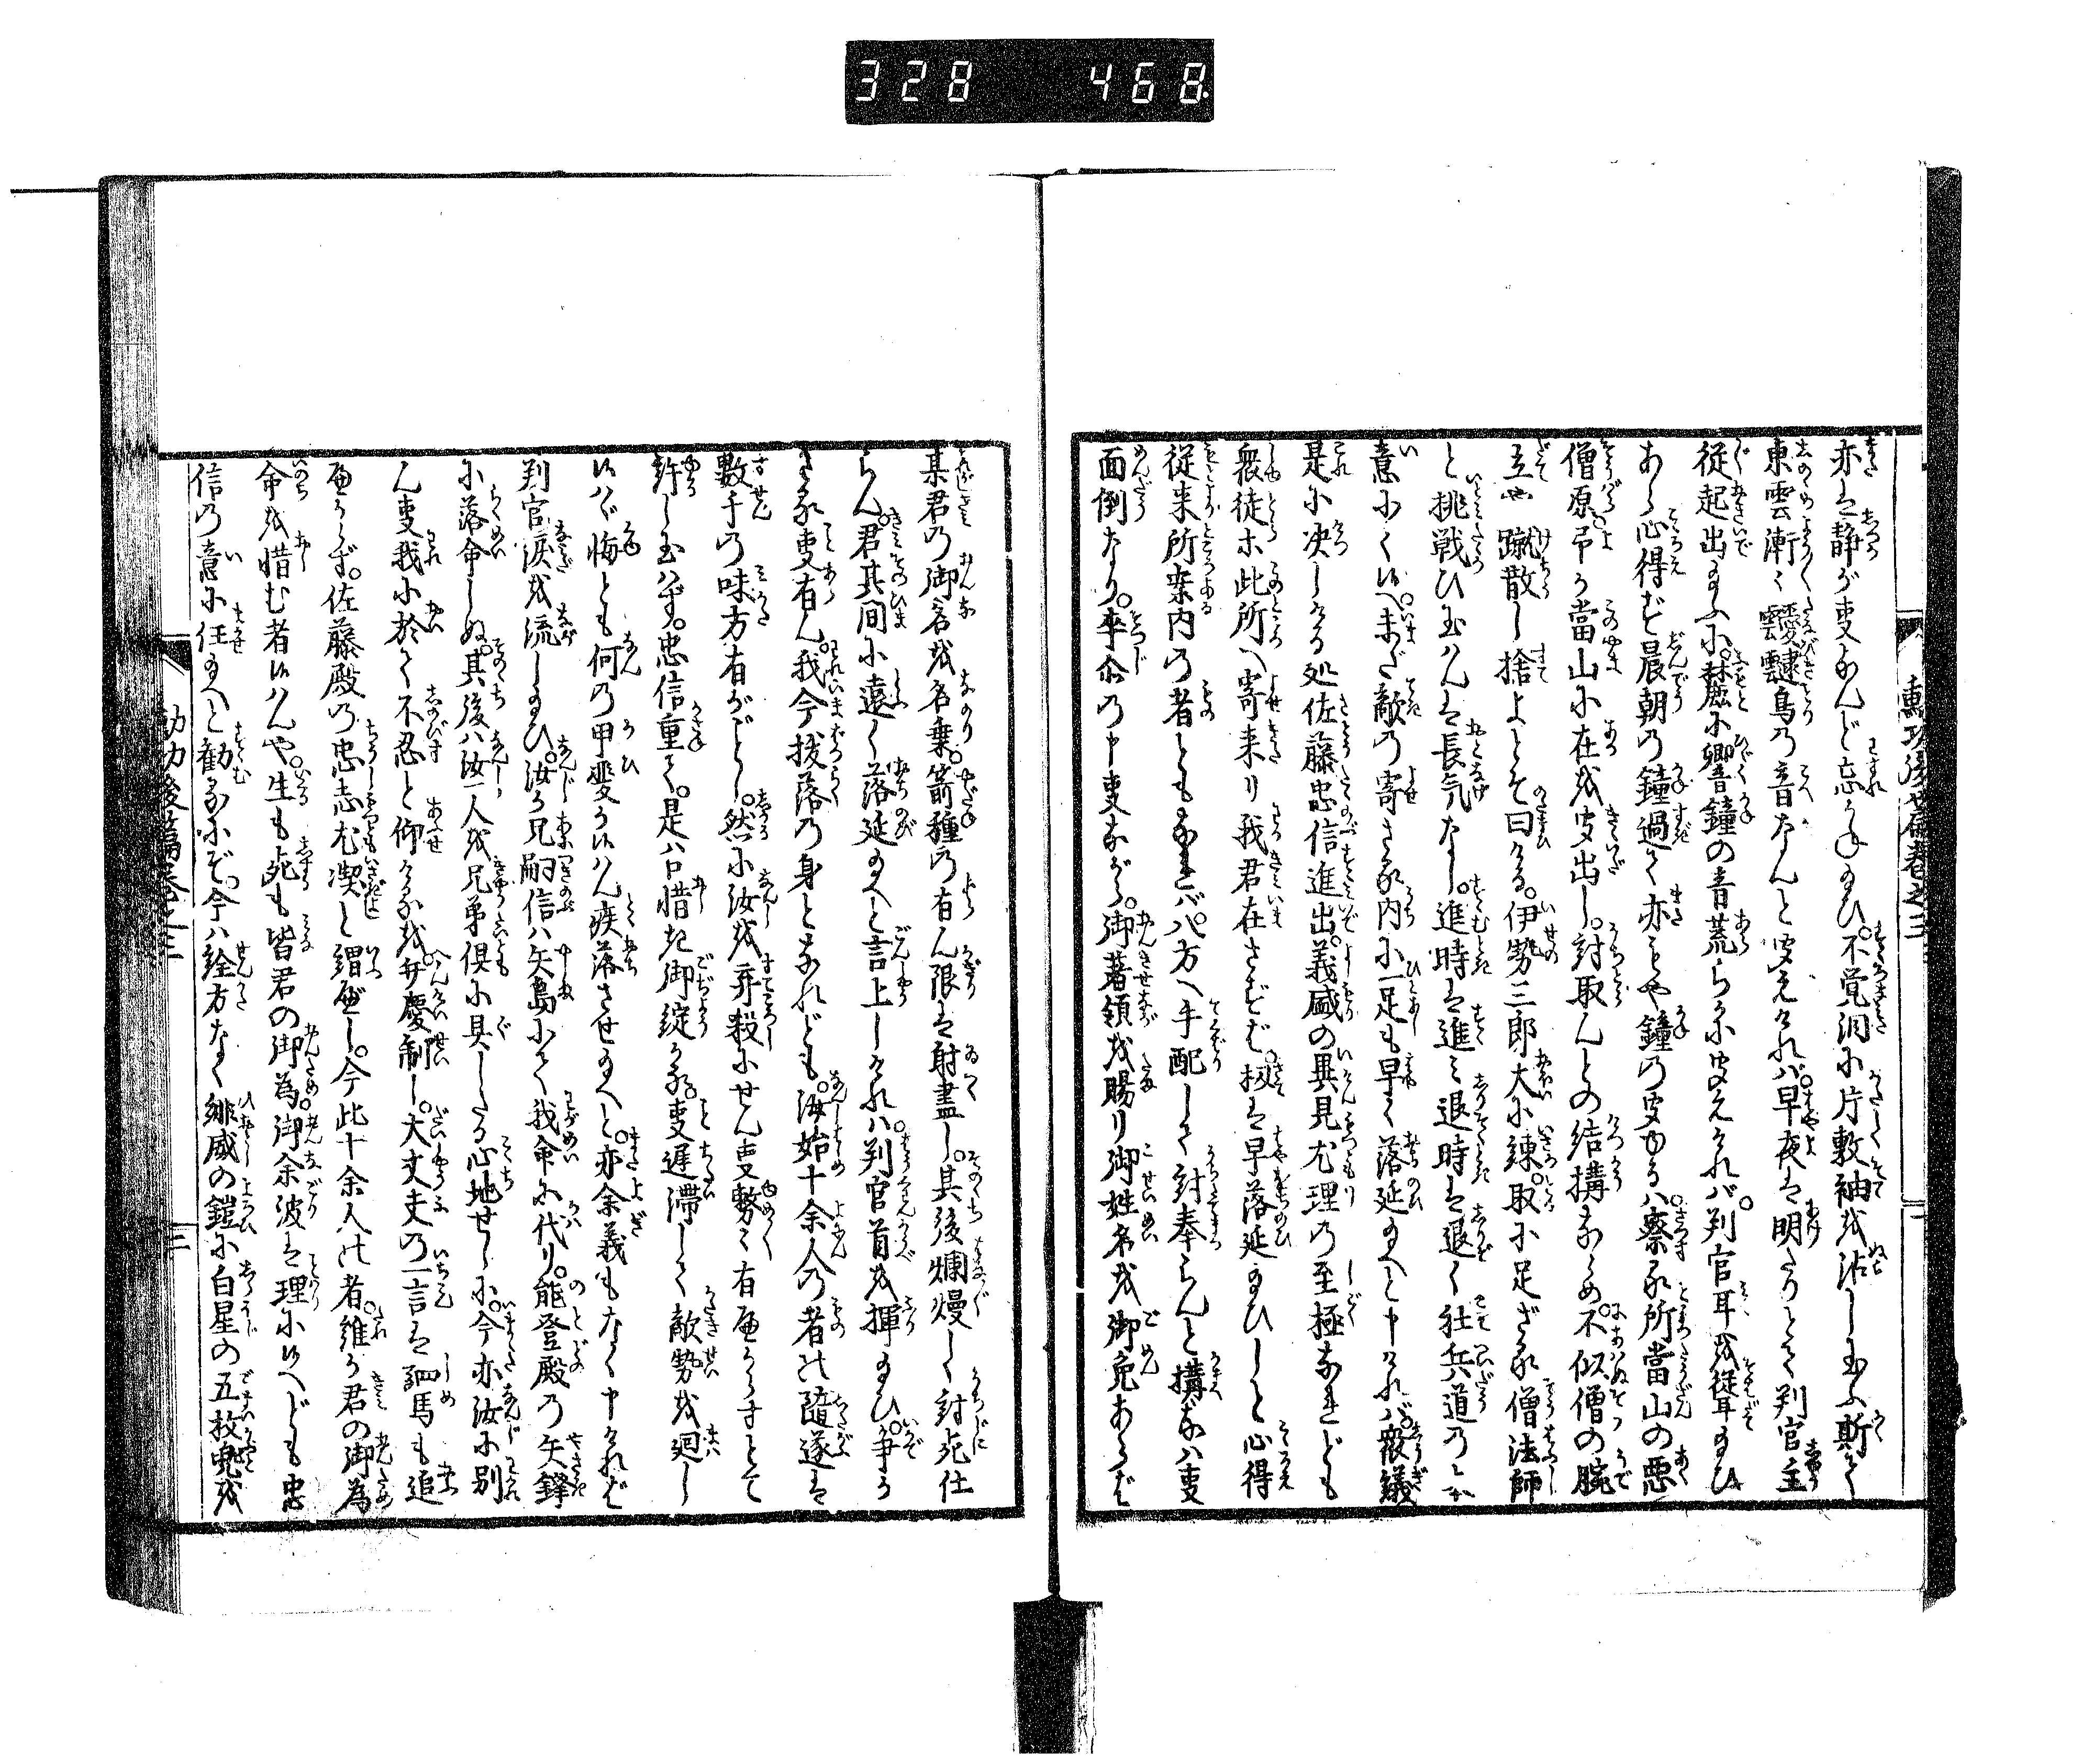 328 468
勲功後篇巻之三
亦も静が事なんど忘かね玉ひ。不覚泪に片敷袖を沾し玉ふ斯て
東雲漸く靉靆鳥の音なんと聞えけれバ。早夜も明たりとて判官主
従起出玉ふに。麓に響鐘の音荒らかに聞えけれバ。判官耳を聳玉ひ
あら心得ずや晨朝の鐘過て亦もや鐘の聞ゆるハ。察る所當山の悪
僧原吊が當山に在を聞出し。討取んとの結構ならめ。不似僧の腕
立や蹴散し捨よとぞ曰ける。伊勢三郎大に練。取に足ざる僧法師
と挑戦ひ玉はんも長気なし。進時も進み退時も退く社兵道の本
意にて候へ。未だ敵の寄さる内に一足も早く落延玉へと申けれバ。衆議
是に决しける処佐藤忠信進出。義盛の異見尤理の至極なれども
衆徒等此所へ寄来り我君在さずバ。扨も早落延玉ひしと心得
従来所案内の者ともなれバ。八方へ手配して討奉らんと搆なハ事
面倒なり。卒尓の申事ながら。御着領を賜り御姓名を御免あらバ
某君の御名を名乗。箭種の有ん限も射盡し。其後爛熳しく討死仕
らん。君其間に遠く落延玉へと言上しけれバ。判官首を揮玉ひ。争か
さる事有ん。我今抜落の身となれども。汝始十余人の者の隨遂も
數千の味方有がごとし。然に汝を弃殺にせん事努々有べからずとて
許し玉ハず。忠信重て。是ハ口惜き御綻かな。事遅滞して敵勢を廻し
候ハヾ悔とも何の甲斐か候はん疾落させ玉へと。亦余義もなく申けれバ
判官涙を流し玉ひ。汝が兄嗣信ハ矢島にて我命に代り。能登殿の矢鋒
に落命しぬ。其後ハ汝一人を兄弟倶に具したる心地せしに。今亦汝に別
ん事我に於て不忍と仰けるを。弁慶制し。大丈夫の一言も駟馬も追
べからず。佐藤殿の忠志尤潔と謂べし。今此十余人の者。維か君の御為
命を惜む者候はんや。生も死も皆君の御為。御余波も理に候へども忠
信の意に任玉へと勧るにぞ。今ハ詮方なく緋威の鎧に白星の五枚兜を
勲功後篇巻之三
三